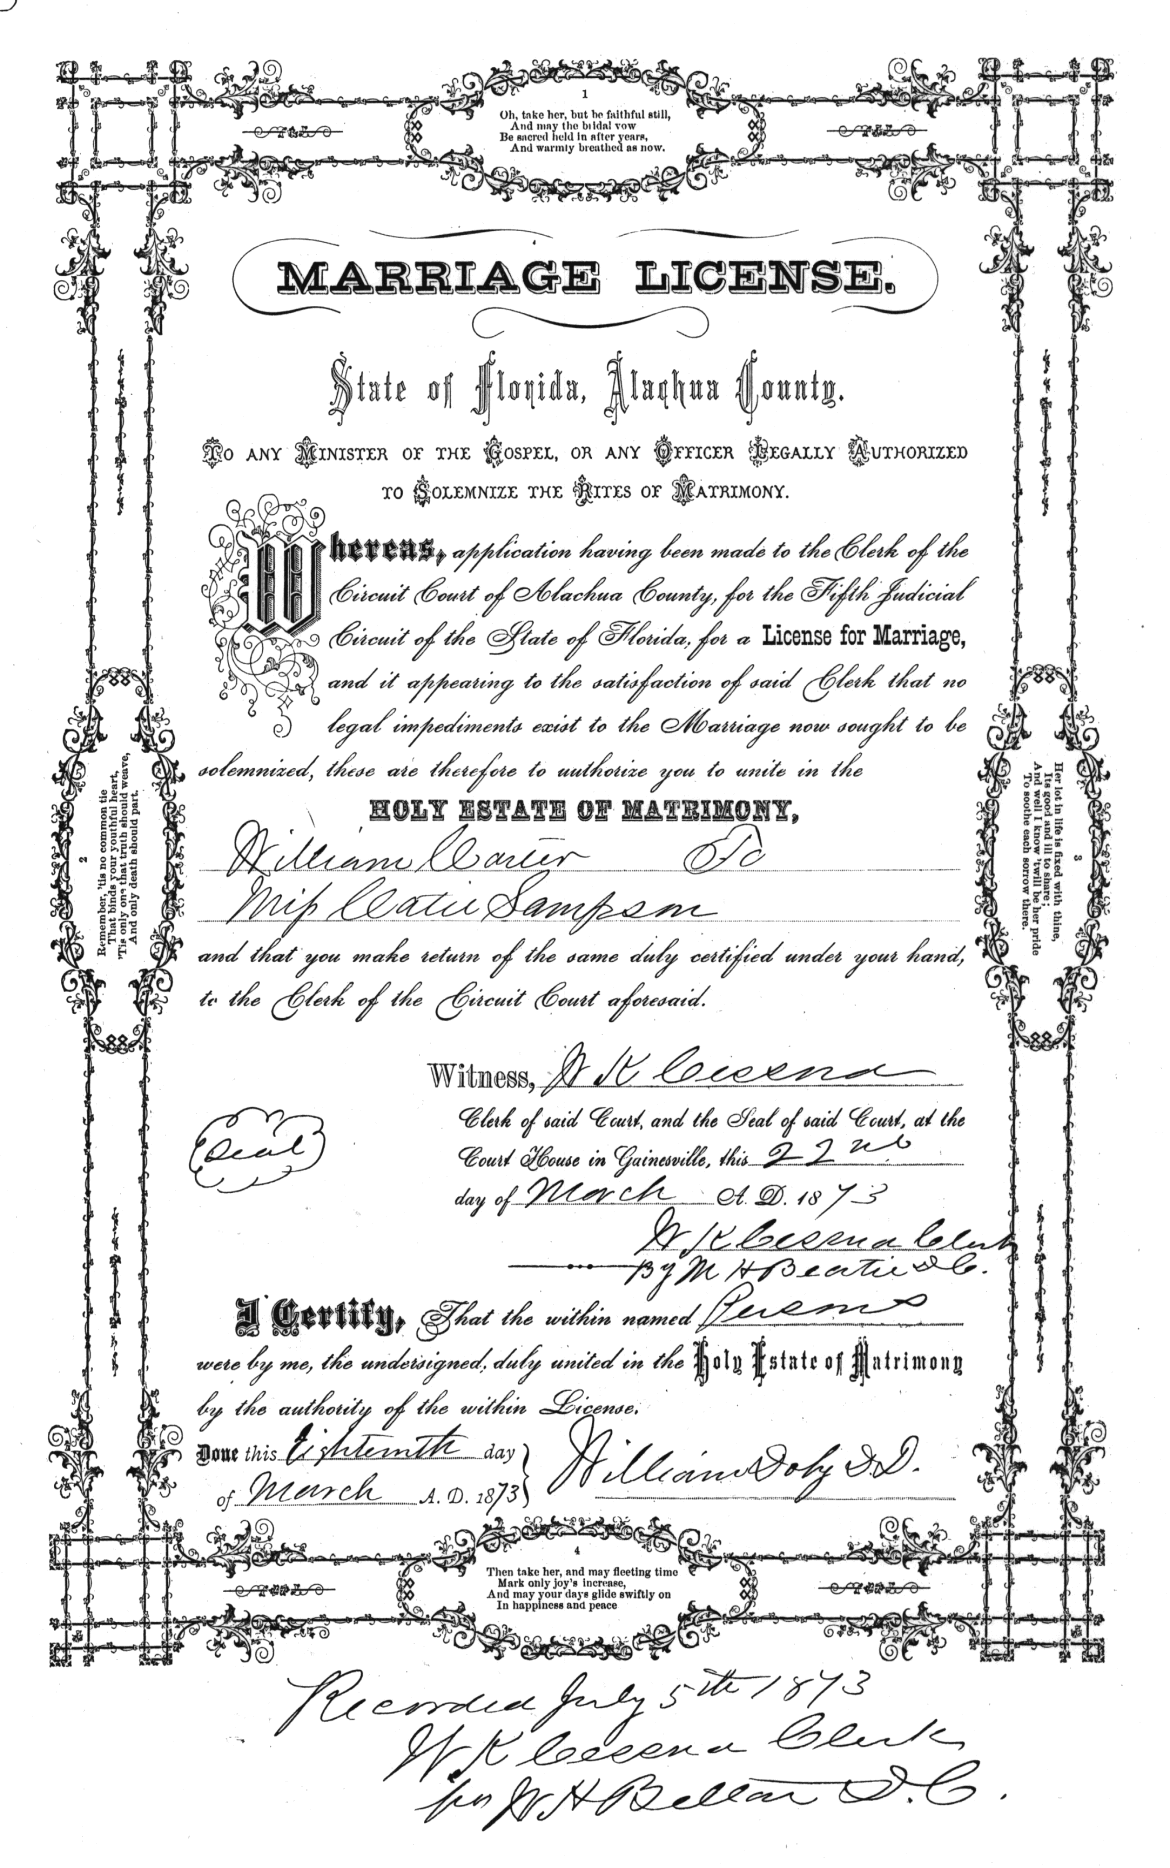 1
Oh, take her, but be faithful still,
And may the bridal vow
Be sacred held in after years,
And warmly breathed as now.
MARRIAGE LICENSE.
State of Florida, Alachua County.
TO ANY MINISTER OF THE GOSPEL, OR ANY OFFICER LEGALLY AUTHORIZED
TO SOLEMNIZE THE RITES OF MATRIMONY.
Whereas, application having been made to the Clerk of the
Circuit Court of Alachua County, for the Fifth Judicial
Circuit of the State of Florida, for a License for Marriage,
and it appearing to the satisfaction of said Clerk that no
legal impediments exist to the Marriage now sought to be
solemnized, these are therefore to authorize you to unite in the
HOLY ESTATE OF MATRIMONY,
William Carter To
Miss Catie Sampson
and that you make return of the same duly certified under your hand,
to the Clerk of the Circuit Court aforesaid.
2
Remember, 'tis no common tie
That binds your youthful heart,
'Tis only one that truth should weave,
And only death should part.
3
Her lot in life is fixed with thine,
Its good and ill to share;
And well I know 'twill be her pride
To soothe each sorrow there.
Witness, W K Cessna
Clerk of said Court, and the Seal of said Court, at the
Seal
Court House in Gainesville, this 22nd
day of March A. D. 1873
W K Cessna Clerk
By M H Beatie D C.
I Certify, That the within named Persons
were by me, the undersigned, duly united in the Holy Estate of Matrimony
by the authority of the within License.
Done this Eighteenth day
of March A. D. 1873
William Doby D. D.
4
Then take her, and may fleeting time
Mark only joy's increase,
And may your days glide swiftly on
In happiness and peace
Recorded July 5th 1873
W K Cessna Clerk
W H D. C.